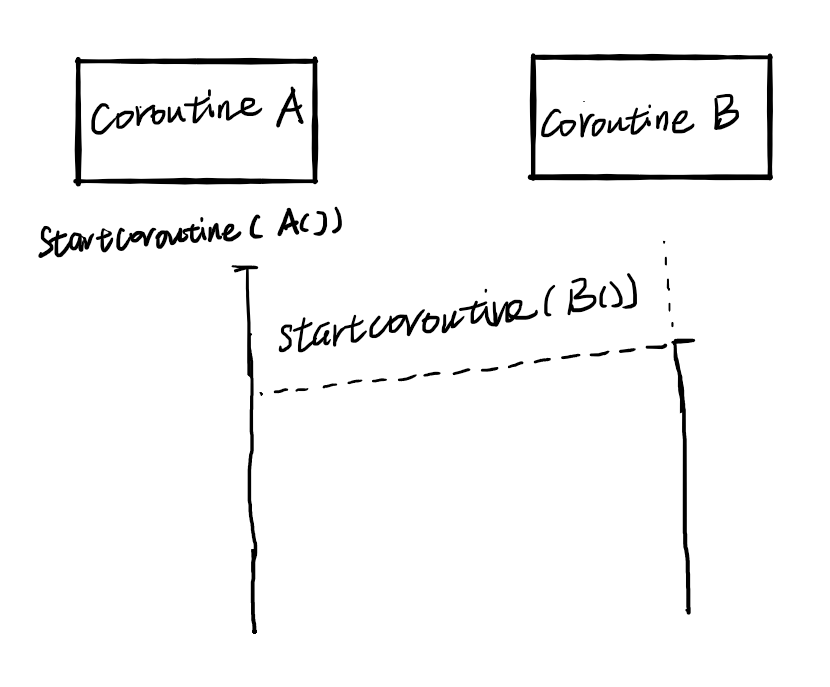 Coroutine A
Coroutine B
Startcoroutine( A())
startcoroutine( B())